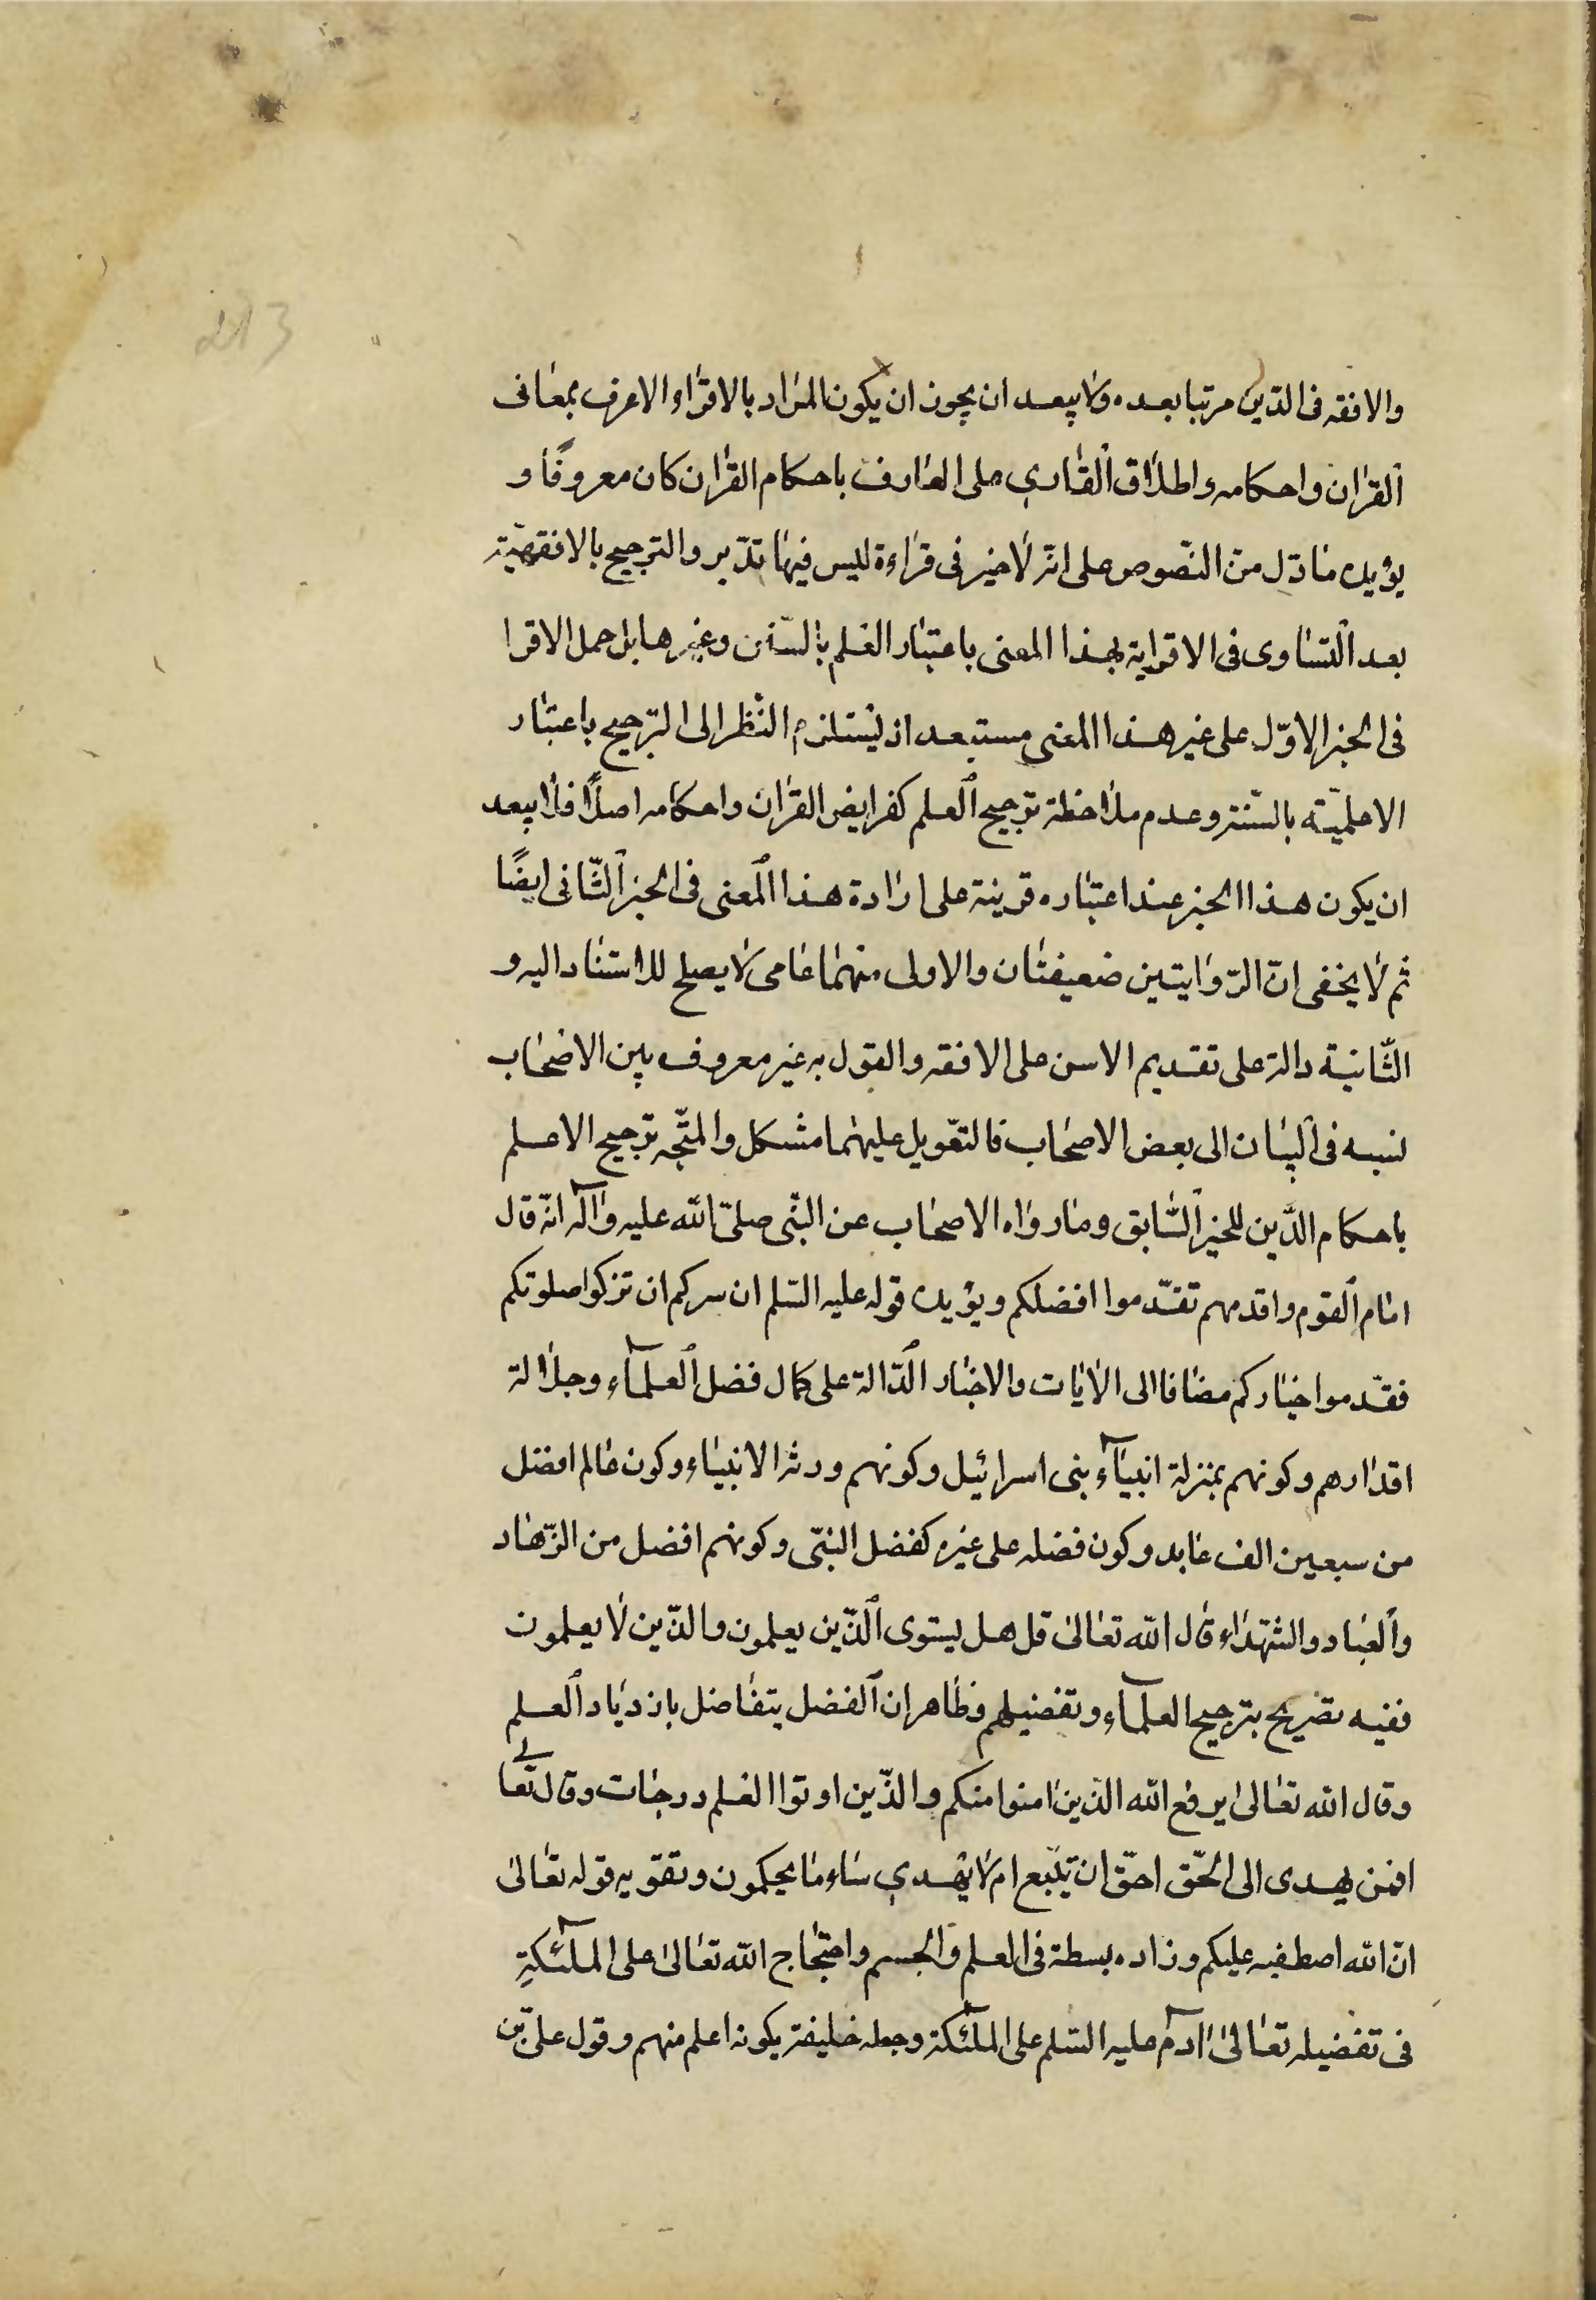 والافقه فی الدّین مرتبا بعده ولا یبعد ان یجوز ان یکون المراد بالاقراء الاعرف بمعانی
القران واحکامه واطلاق القاری علی العارف باحکام القران کان معروفًا و
یؤیده ما دلّ من النّصوص علی انّه لا خیر فی قراءة لیس فیها تدّبر والترجیح بالافقهیّة
بعد التساوی فی الاقرایة بهذا المعنی باعتبار العلم بالسّنن وغیرها بل حمل الاقرا
فی الخبر الاوّل علی غیر هذا المعنی مستبعد اذ یستلزم النظر الی الترجیح باعتبار
الاعلمیّة بالسّنة وعدم ملاحظة ترجیح العلم کفرایض القران واحکامه اصلًا فلا یبعد
ان یکون هذا الخبر عند اعتباره قرینة علی ارادة هذا المعنی فی الخبر الثّانی ایضًا
ثم لا یخفی انّ الرّوایتین ضعیفتان والاولی منهما عامی لا یصلح للاستناد الیه و
الثّانیة دالة علی تقدیم الاسن علی الافقه والقول به غیر معروف بین الاصحاب
نسبه فی البیان الی بعض الاصحاب فالتعّویل علیهما مشکل والمتّجه ترجیح الاعلم
باحکام الدّین للخبر السّابق وما رواه الاصحاب عن النّبی صلیّ الله علیه وآله انّه قال
امام القوم وافدهم تقدّموا افضلکم ویؤیده قوله علیه السّلم ان سرکم ان تزکوا صلوتکم
فقدّموا خیارکم مضافا الی الایات والاخبار الدّالة علی کمال فضل العلمآء وجلالة
اقدارهم وکونهم بمنزلة انبیآء بنی اسرائیل وکونهم ورثه الانبیاء وکون عالم افضل
من سبعین الف عابد وکون فضله علی غیره کفضل النبّی وکونهم افضل من الزّهاد
والعباد والشهداء قال الله تعالی قل هل یستوی الذّین یعلمون والذّین لا یعلمون
ففیه تصریح بترجیح العلمآء وتفضیلهم وظاهر ان الفضل یتفاضل بازدیاد العلم
وقال الله تعالی یرفع الله الذین امنوا منکم والذّین اوتوا العلم درجات وقال تعالی
افمن یهدی الی الحّق احقّ ان یتّبع ام لا یهدی ساء ما یحکمون وتقویه قوله تعالی
انّ الله اصطفیه علیکم وزاده بسطة فی العلم والجسم واحتجاج الله تعالی علی الملئکةِ
فی تفضیله تعالی آدم علیه السّلم علی الملئکة وجعله خلیفة بکونه اعلم منهم وقول علّی بن